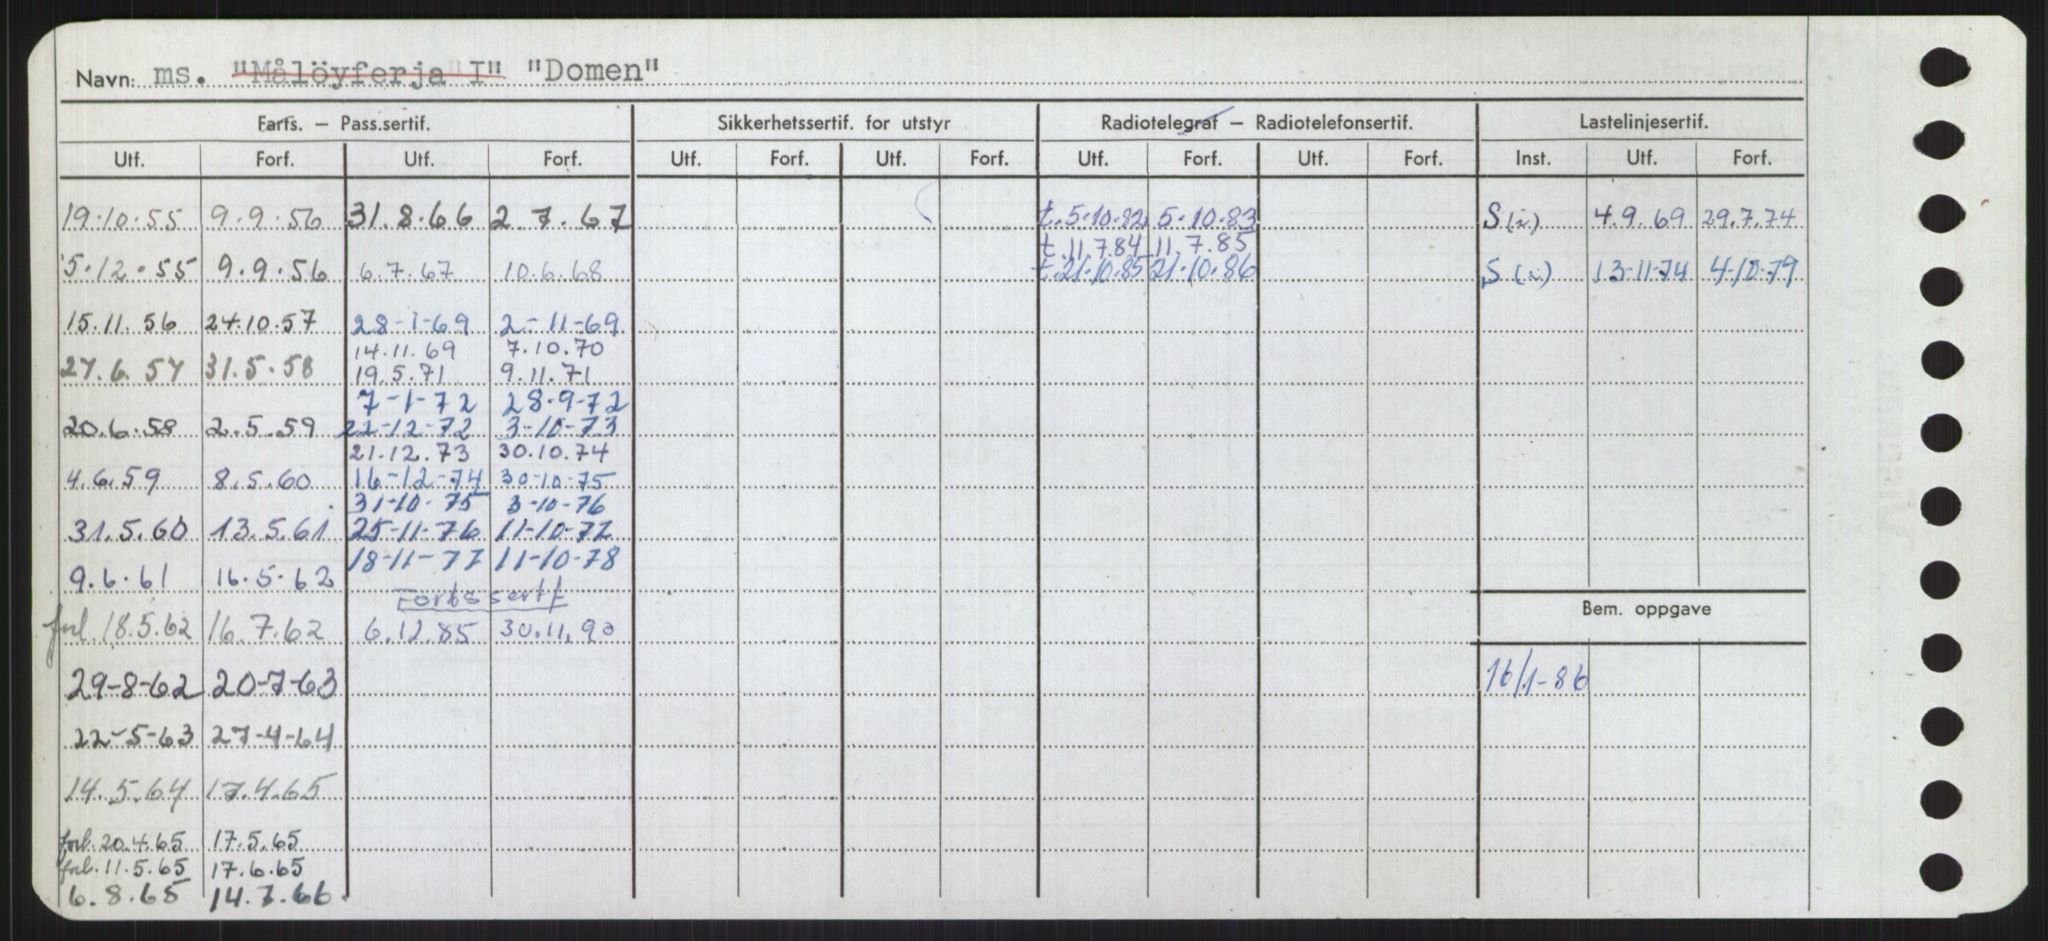 Navn: ms. "Målöyferja I" "Domen"
Farts. — Pass.sertif. Sikkerhetssertif. for utstyr Radiotelegraf — Radiotelefonsertif. Lastelinjesertif.
Utf. Forf. Utf. Forf. Utf. Forf. Utf. Forf. Utf. Forf. Utf. Forf. Inst. Utf. Forf.
19.10.55 9.9.56 31.8.66 2.7.67 t. 5.10.82 5.10.83 S(i) 4.9.69 29.7.74
t. 11.7.84 11.7.85
5.12.55 9.9.56 6.7.67 10.6.68 t. 21.10.85 21.10.86 S(i) 13-11-74 4-10-79
15.11.56 24.10.57 28-1-69 2-11-69
14.11.69 7.10.70
27.6.57 31.5.58 19.5.71 9.11.71
7-1-72 28-9-72
20.6.58 2.5.59 22-12-72 3-10-73
21.12.73 30.10.74
4.6.59 8.5.60 16-12-74 30-10-75
31-10-75 3-10-76
31.5.60 13.5.61 25-11-76 11-10-77
18-11-77 11-10-78
9.6.61 16.5.62 Fartssertf
Bem. oppgave
18.5.62 16.7.62 6.12.85 30.11.90
29-8-62 20-7-63 16/1-86
22-5-63 27-4-64
14.5.64 17.4.65
forl. 20.4.65 17.5.65
forl. 11.5.65 17.6.65
6.8.65 14.7.66